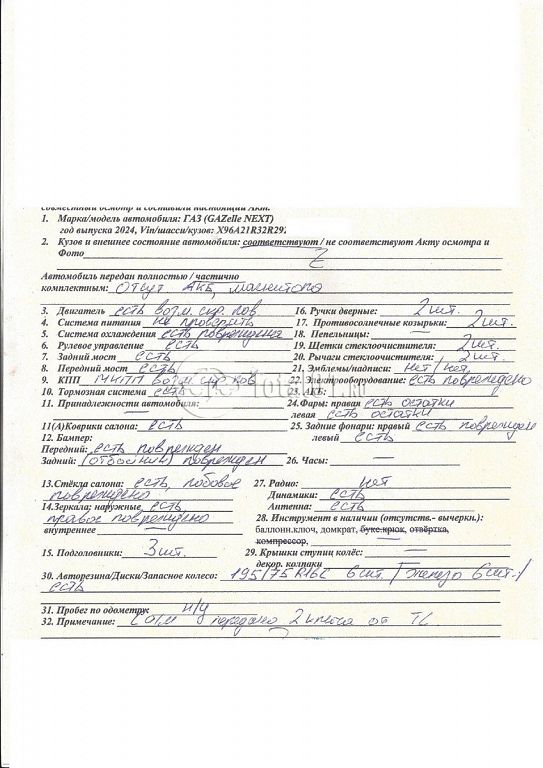 совместный осмотр и составили настоящий Акт.
1. Марка/модель автомобиля: ГАЗ (GAZelle NEXT)
год выпуска 2024, Vin/шасси/кузов: X96A21R32R29
2. Кузов и внешнее состояние автомобиля: соответствуют / не соответствуют Акту осмотра и
Фото
Автомобиль передан полностью / частично
комплектным: Отсут АКБ, магнитола
3. Двигатель есть возм. скр. пов
4. Система питания не проверить
5. Система охлаждения есть повреждена
6. Рулевое управление есть
7. Задний мост есть
8. Передний мост есть
9. КПП МКПП возм скр пов
10. Тормозная система есть
11. Принадлежности автомобиля: —
11(А)Коврики салона: есть
12. Бампер:
Передний: есть поврежден
Задний: (отбойник) поврежден
13.Стёкла салона: есть, лобовое
повреждено
14.Зеркала: наружные есть
правое повреждено
внутреннее —
15. Подголовники: 3 шт.
16. Ручки дверные: 2 шт.
17. Противосолнечные козырьки: 2 шт.
18. Пепельницы: —
19. Щетки стеклоочистителя: 2 шт.
20. Рычаги стеклоочистителя: 2 шт.
21. Эмблемы/надписи: нет / нет
22. Электрооборудование: есть повреждено
23. АКБ:
24.Фары: правая есть остатки
левая есть остатки
25. Задние фонари: правый есть поврежден
левый есть
26. Часы: —
27. Радио: нет
Динамики: есть
Антенна: есть
28. Инструмент в наличии (отсутств.- вычеркн.):
баллонн.ключ, домкрат, букс.крюк, отвёртка,
компрессор, —
29. Крышки ступиц колёс: —
декор. колпаки
30. Авторезина/Диски/Запасное колесо: 195/75 R16C 6 шт. / железо 6 шт. /
есть
31. Пробег по одометру: н/у
32. Примечание: а/м передано 2 ключа от ТС